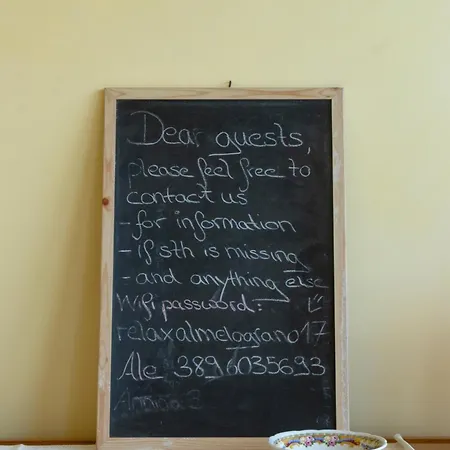 Dear guests,
please feel free to
contact us
- for information
- if sth is missing
- and anything else
Wifi password:
relaxalmelograno17
Ale 3896035693